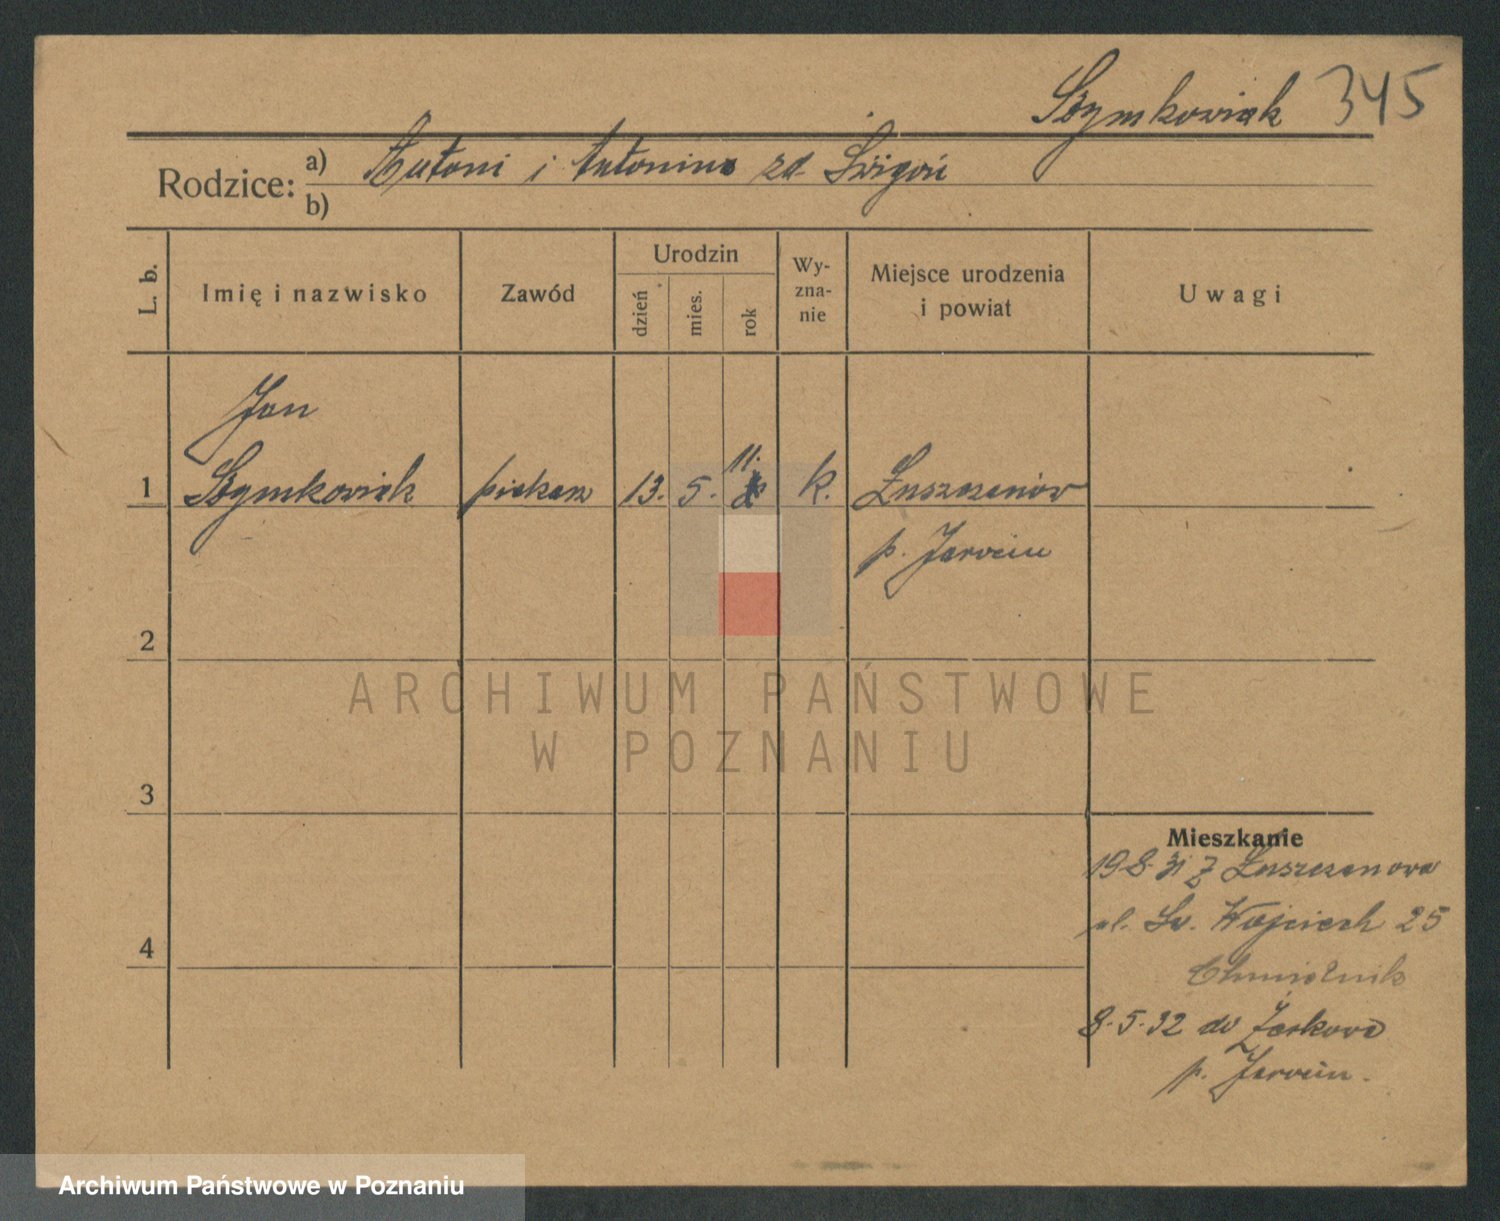 Szymkowiak 345
Rodzice: a) Antoni i Antonina zd. Świgoń
b)
L. b. Imię i nazwisko Zawód Urodzin dzień mies. rok Wy-zna-nie Miejsce urodzenia i powiat Uwagi
Jan
1 Szymkowiak piekarz 13. 5. 11. k. Łuszczanów
p. Jarocin
2
ARCHIWUM PAŃSTWOWE
W POZNANIU
3
Mieszkanie
19 8. 31 z Łuszczanowa
ul. Św. Wojciech 25
4
Chmielnik
8. 5. 32 do Żerkowa
p. Jarocin.
Archiwum Państwowe w Poznaniu